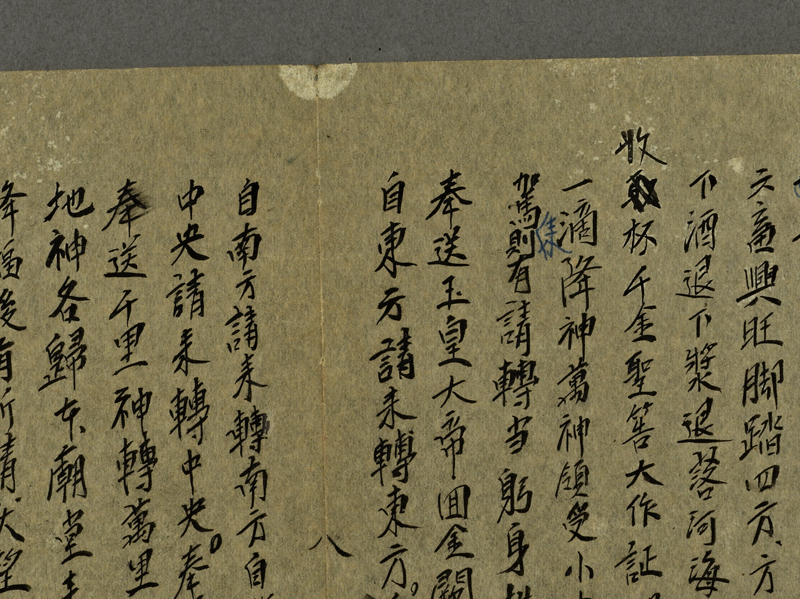 六畜興旺脚踏四方方
下酒退下漿退落河海
收杯千金聖筶大作証
一滴降神萬神領受小
駕則有請轉当躬身
奉送玉皇大帝囬金闕
自東方請来轉東方。
八
自南方請来轉南方自
中央請来轉中央。奉
奉送千里神轉萬里
地神各歸本廟堂
降福後有所請大望